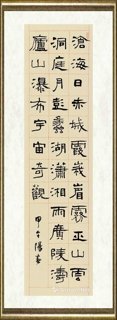 滄海日赤城霞峩眉霧巫山雲
洞庭月彭蠡湖瀟湘雨廣陵濤
廬山瀑布宇宙奇觀
甲午